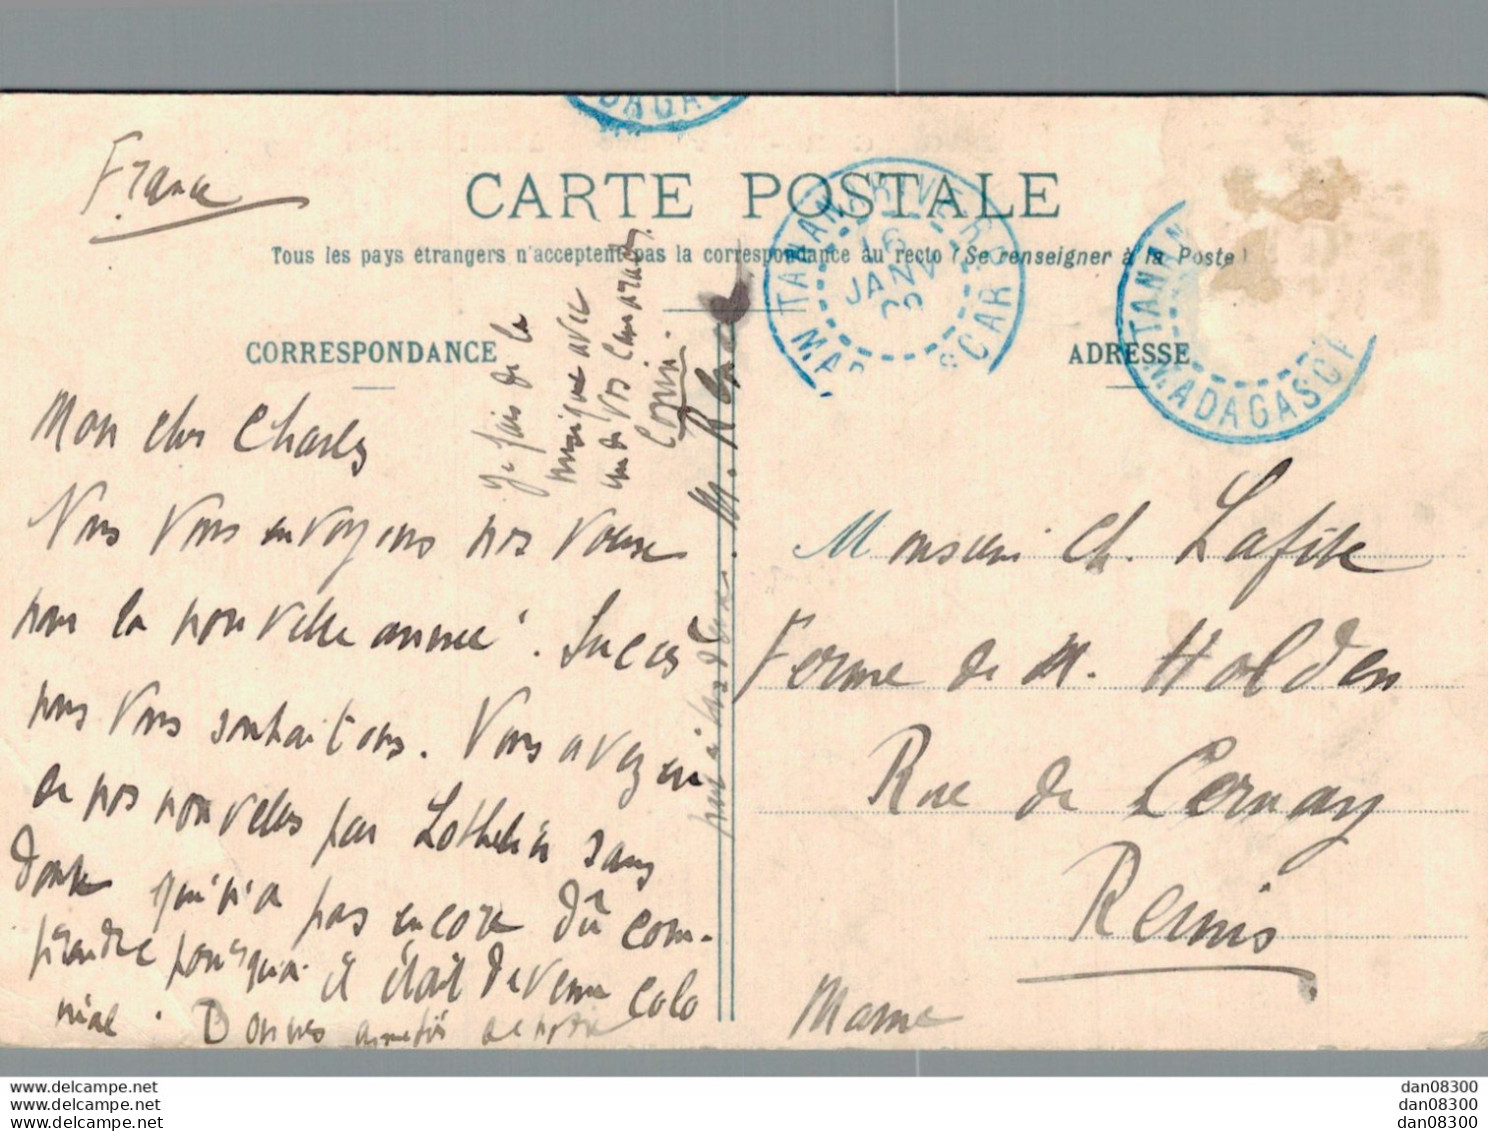 DAGAS
France
CARTE POSTALE
Tous les pays étrangers n'acceptent pas la correspondance au recto (Se renseigner à la Poste)
TANANARIVE
16
JANV
MADAGASCAR
TANAN
MADAGASCA
CORRESPONDANCE
ADRESSE
Mon cher Charles
Nous vous envoyons nos voeux
pour la nouvelle année. Succès
nous vous souhaitons. Vous avez eu
de nos nouvelles par sans
doute qu'il n'a pas encore dû com-
prendre pourquoi il était devenu colo
nial. Donnes amitiés de notre
Je fais de la
musique avec
un de vos camarades
M.
Monsieur Ch. Lafite
Ferme de M. Holden
Rue de Cernay
Reims
Marne
www.delcampe.net
www.delcampe.net
www.delcampe.net
dan08300
dan08300
dan08300